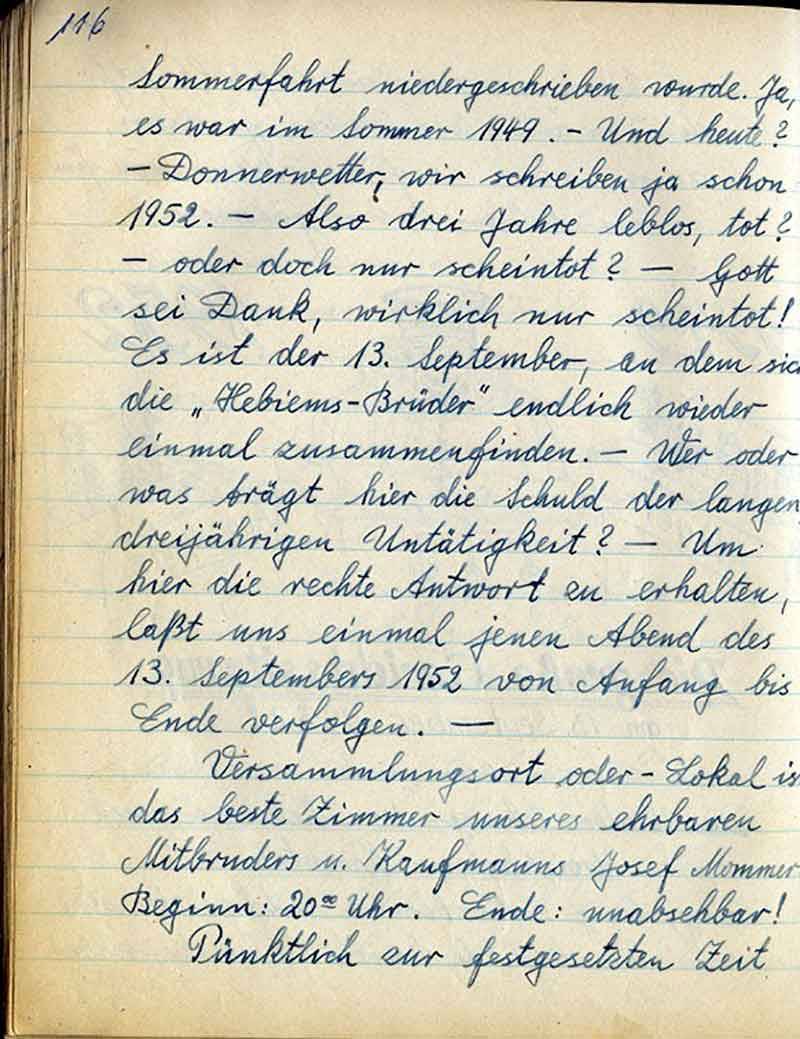 116
Sommerfahrt niedergeschrieben wurde. Ja,
es war im Sommer 1949. - Und heute?
- Donnerwetter, wir schreiben ja schon
1952. - Also drei Jahre leblos, tot?
- oder doch nur scheintot? - Gott
sei Dank, wirklich nur scheintot!
Es ist der 13. September, an dem sich
die „Hebiems-Brüder" endlich wieder
einmal zusammenfinden. - Wer oder
was trägt hier die Schuld der langen,
dreijährigen Untätigkeit? - Um
hier die rechte Antwort zu erhalten,
laßt uns einmal jenen Abend des
13. Septembers 1952 von Anfang bis
Ende verfolgen. -
Versammlungsort oder - Lokal is
das beste Zimmer unseres ehrbaren
Mitbruders u. Kaufmanns Josef Mommer
Beginn: 20ºº Uhr. Ende: unabsehbar!
Pünktlich zur festgesetzten Zeit